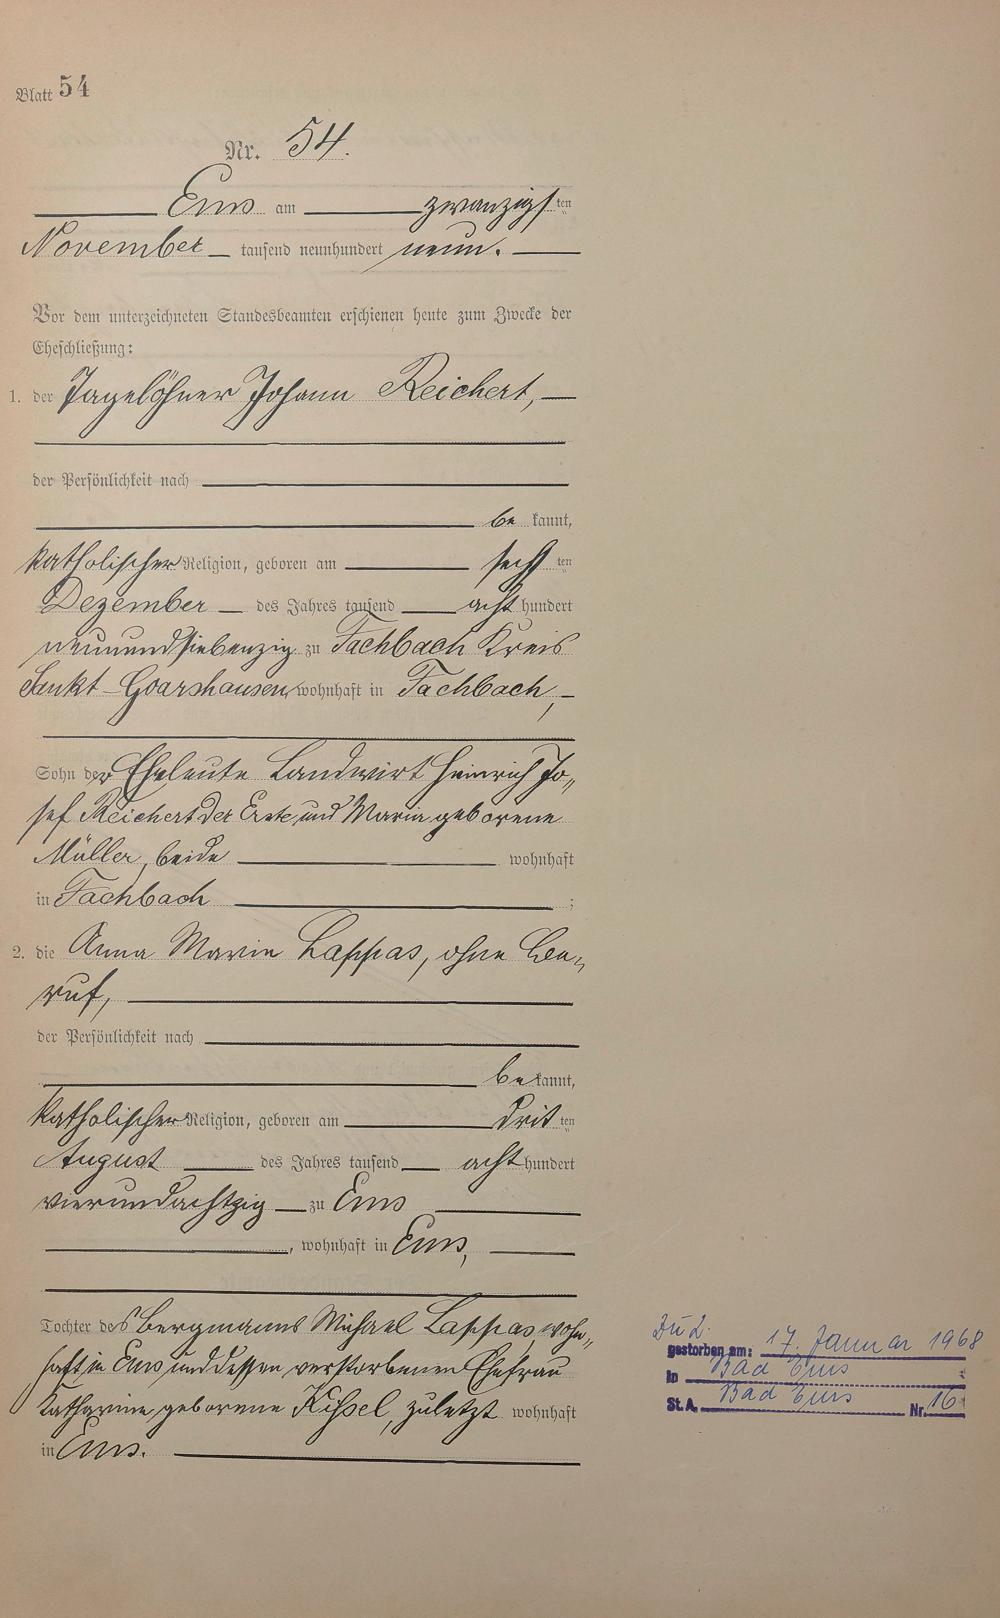 Blatt 54
Nr. 54.
Ems am zwanzigsten
November tausend neunhundert neun.
Vor dem unterzeichneten Standesbeamten erschienen heute zum Zwecke der
Eheschließung:
1. der Tagelöhner Johann Reichert,
der Persönlichkeit nach
be kannt,
katholischer Religion, geboren am sechsten
Dezember des Jahres tausend acht hundert
neunundsiebenzig zu Fachbach Kreis
Sankt-Goarshausen, wohnhaft in Fachbach,
Sohn der Eheleute Landwirt Heinrich Jo„
sef Reichert der Erste und Maria geborene
Müller, beide wohnhaft
in Fachbach ;
2. die Anna Maria Lappas, ohne Be„
ruf,
der Persönlichkeit nach
be kannt,
katholischer Religion, geboren am dritten
August des Jahres tausend acht hundert
vierundachtzig zu Ems
, wohnhaft in Ems,
Tochter des Bergmanns Michael Lappas, wohn„
haft in Ems und dessen verstorbenen Ehefrau
Katharina, geborene Kissel, zuletzt wohnhaft
in Ems.
Zu 2.
gestorben am: 17. Januar 1968
in Bad Ems
St.A. Bad Ems Nr. 16